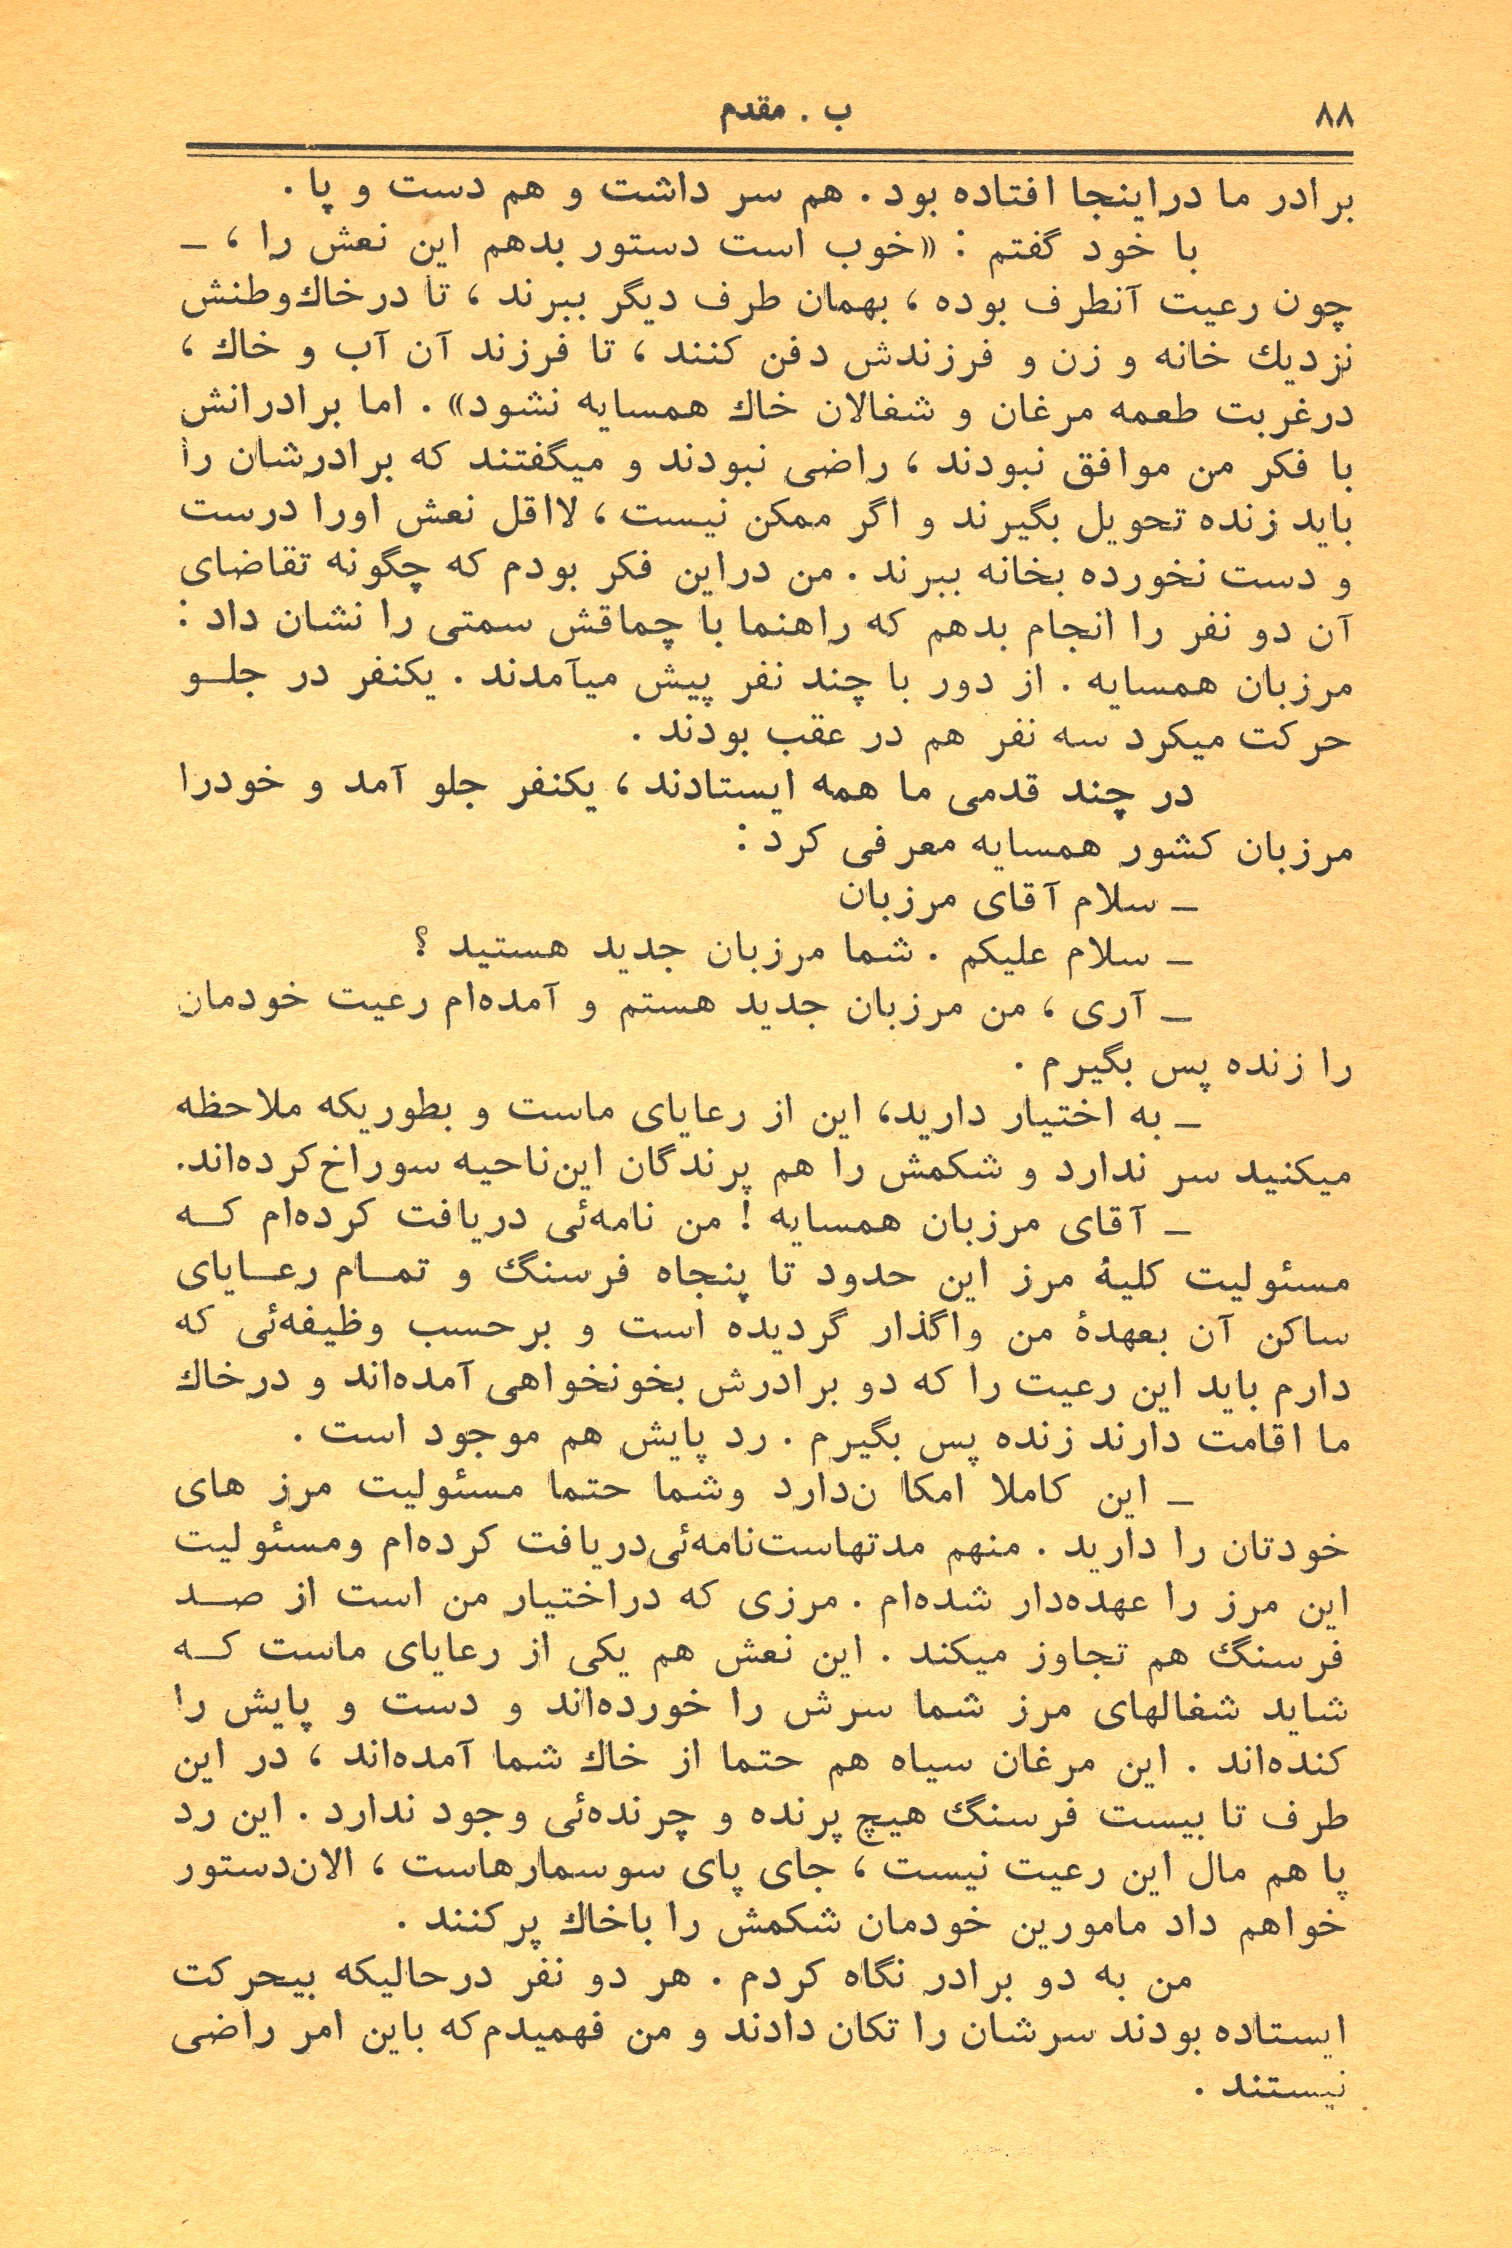 ۸۸
ب . مقدم
برادر ما دراینجا افتاده بود . هم سر داشت و هم دست و پا .
با خود گفتم : «خوب است دستور بدهم این نعش را ، ـ
چون رعیت آنطرف بوده ، بهمان طرف دیگر ببرند ، تا درخاك‌وطنش
نزدیك خانه و زن و فرزندش دفن کنند ، تا فرزند آن آب و خاك ،
درغربت طعمه مرغان و شغالان خاك همسایه نشود» . اما برادرانش
با فکر من موافق نبودند ، راضی نبودند و میگفتند که برادرشان را
باید زنده تحویل بگیرند و اگر ممکن نیست ، لااقل نعش اورا درست
و دست نخورده بخانه ببرند . من دراین فکر بودم که چگونه تقاضای
آن دو نفر را انجام بدهم که راهنما با چماقش سمتی را نشان داد :
مرزبان همسایه . از دور با چند نفر پیش میآمدند . یکنفر در جلـو
حرکت میکرد سه نفر هم در عقب بودند .
در چند قدمی ما همه ایستادند ، یکنفر جلو آمد و خودرا
مرزبان کشور همسایه معرفی کرد :
ـ سلام آقای مرزبان
ـ سلام علیکم . شما مرزبان جدید هستید ؟
ـ آری ، من مرزبان جدید هستم و آمده‌ام رعیت خودمان
را زنده پس بگیرم .
ـ به اختیار دارید، این از رعایای ماست و بطوریکه ملاحظه
میکنید سر ندارد و شکمش را هم پرندگان این‌ناحیه سوراخ‌کرده‌اند.
ـ آقای مرزبان همسایه ! من نامه‌ئی دریافت کرده‌ام کـه
مسئولیت کلیۀ مرز این حدود تا پنجاه فرسنگ و تمـام رعـایای
ساکن آن بعهدۀ من واگذار گردیده است و برحسب وظیفه‌ئی که
دارم باید این رعیت را که دو برادرش بخونخواهی آمده‌اند و درخاك
ما اقامت دارند زنده پس بگیرم . رد پایش هم موجود است .
ـ این کاملا امکا ن‌دارد وشما حتما مسئولیت مرز های
خودتان را دارید . منهم مدتهاست‌نامه‌ئی‌دریافت کرده‌ام ومسئولیت
این مرز را عهده‌دار شده‌ام . مرزی که دراختیار من است از صـد
فرسنگ هم تجاوز میکند . این نعش هم یکی از رعایای ماست کـه
شاید شغالهای مرز شما سرش را خورده‌اند و دست و پایش را
کنده‌اند . این مرغان سیاه هم حتما از خاك شما آمده‌اند ، در این
طرف تا بیست فرسنگ هیچ پرنده و چرنده‌ئی وجود ندارد . این رد
پا هم مال این رعیت نیست ، جای پای سوسمارهاست ، الان‌دستور
خواهم داد مامورین خودمان شکمش را باخاك پرکنند .
من به دو برادر نگاه کردم . هر دو نفر درحالیکه بیحرکت
ایستاده بودند سرشان را تکان دادند و من فهمیدم‌که باین امر راضی
نیستند .